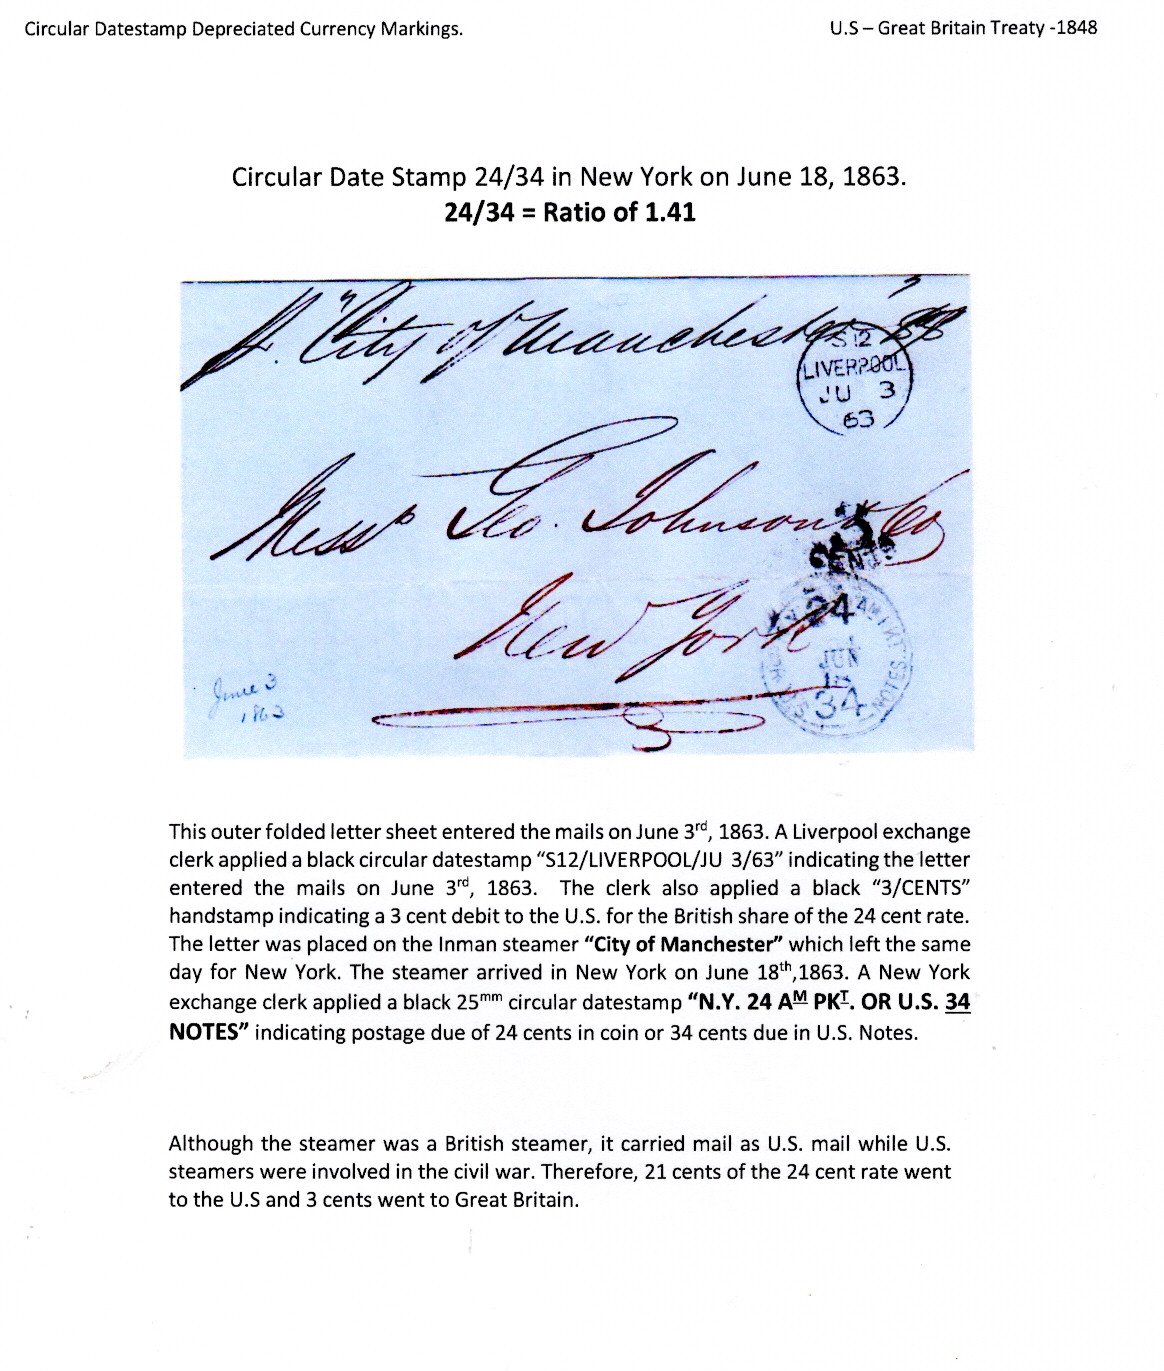 Circular Datestamp Depreciated Currency Markings.
U.S – Great Britain Treaty -1848
Circular Date Stamp 24/34 in New York on June 18, 1863.
24/34 = Ratio of 1.41
"City of Manchester"
S12
LIVERPOOL
JU 3
63
Messrs Geo. Johnson & Co
3
CENTS
New York
24
JUN
18
34
NOTES
June 3
1863
This outer folded letter sheet entered the mails on June 3rd, 1863. A Liverpool exchange
clerk applied a black circular datestamp “S12/LIVERPOOL/JU 3/63” indicating the letter
entered the mails on June 3rd, 1863. The clerk also applied a black “3/CENTS”
handstamp indicating a 3 cent debit to the U.S. for the British share of the 24 cent rate.
The letter was placed on the Inman steamer “City of Manchester” which left the same
day for New York. The steamer arrived in New York on June 18th,1863. A New York
exchange clerk applied a black 25mm circular datestamp “N.Y. 24 AM PKT. OR U.S. 34
NOTES” indicating postage due of 24 cents in coin or 34 cents due in U.S. Notes.
Although the steamer was a British steamer, it carried mail as U.S. mail while U.S.
steamers were involved in the civil war. Therefore, 21 cents of the 24 cent rate went
to the U.S and 3 cents went to Great Britain.